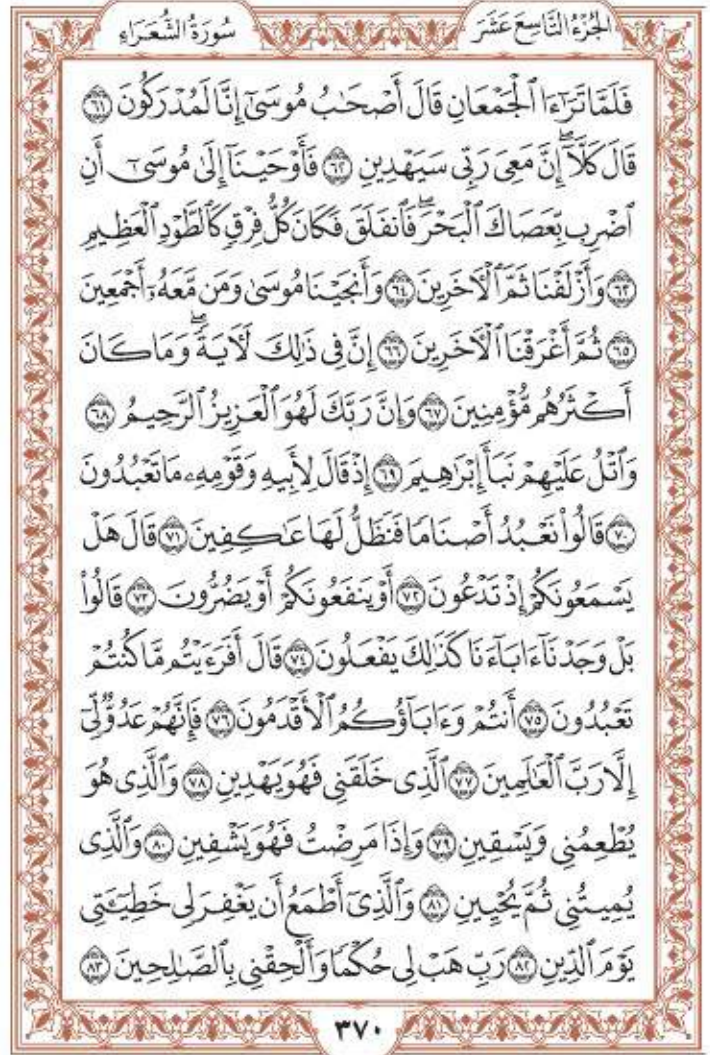 الجُزْءُ التَّاسِعَ عَشَرَ
سُورَةُ الشُّعَرَاءِ
فَلَمَّا تَرَٰٓءَا ٱلۡجَمۡعَانِ قَالَ أَصۡحَٰبُ مُوسَىٰٓ إِنَّا لَمُدۡرَكُونَ ٦١
قَالَ كَلَّآۖ إِنَّ مَعِيَ رَبِّي سَيَهۡدِينِ ٦٢ فَأَوۡحَيۡنَآ إِلَىٰ مُوسَىٰٓ أَنِ
ٱضۡرِب بِّعَصَاكَ ٱلۡبَحۡرَۖ فَٱنفَلَقَ فَكَانَ كُلُّ فِرۡقٖ كَٱلطَّوۡدِ ٱلۡعَظِيمِ
٦٣ وَأَزۡلَفۡنَا ثَمَّ ٱلۡأٓخَرِينَ ٦٤ وَأَنجَيۡنَا مُوسَىٰ وَمَن مَّعَهُۥٓ أَجۡمَعِينَ
٦٥ ثُمَّ أَغۡرَقۡنَا ٱلۡأٓخَرِينَ ٦٦ إِنَّ فِي ذَٰلِكَ لَأٓيَةٗۖ وَمَا كَانَ
أَكۡثَرُهُم مُّؤۡمِنِينَ ٦٧ وَإِنَّ رَبَّكَ لَهُوَ ٱلۡعَزِيزُ ٱلرَّحِيمُ ٦٨
وَٱتۡلُ عَلَيۡهِمۡ نَبَأَ إِبۡرَٰهِيمَ ٦٩ إِذۡ قَالَ لِأَبِيهِ وَقَوۡمِهِۦ مَا تَعۡبُدُونَ
٧٠ قَالُواْ نَعۡبُدُ أَصۡنَامٗا فَنَظَلُّ لَهَا عَٰكِفِينَ ٧١ قَالَ هَلۡ
يَسۡمَعُونَكُمۡ إِذۡ تَدۡعُونَ ٧٢ أَوۡ يَنفَعُونَكُمۡ أَوۡ يَضُرُّونَ ٧٣ قَالُواْ
بَلۡ وَجَدۡنَآ ءَابَآءَنَا كَذَٰلِكَ يَفۡعَلُونَ ٧٤ قَالَ أَفَرَءَيۡتُم مَّا كُنتُمۡ
تَعۡبُدُونَ ٧٥ أَنتُمۡ وَءَابَآؤُكُمُ ٱلۡأَقۡدَمُونَ ٧٦ فَإِنَّهُمۡ عَدُوّٞ لِّيٓ
إِلَّا رَبَّ ٱلۡعَٰلَمِينَ ٧٧ ٱلَّذِي خَلَقَنِي فَهُوَ يَهۡدِينِ ٧٨ وَٱلَّذِي هُوَ
يُطۡعِمُنِي وَيَسۡقِينِ ٧٩ وَإِذَا مَرِضۡتُ فَهُوَ يَشۡفِينِ ٨٠ وَٱلَّذِي
يُمِيتُنِي ثُمَّ يُحۡيِينِ ٨١ وَٱلَّذِيٓ أَطۡمَعُ أَن يَغۡفِرَ لِي خَطِيٓـَٔتِي
يَوۡمَ ٱلدِّينِ ٨٢ رَبِّ هَبۡ لِي حُكۡمٗا وَأَلۡحِقۡنِي بِٱلصَّٰلِحِينَ ٨٣
٣٧٠